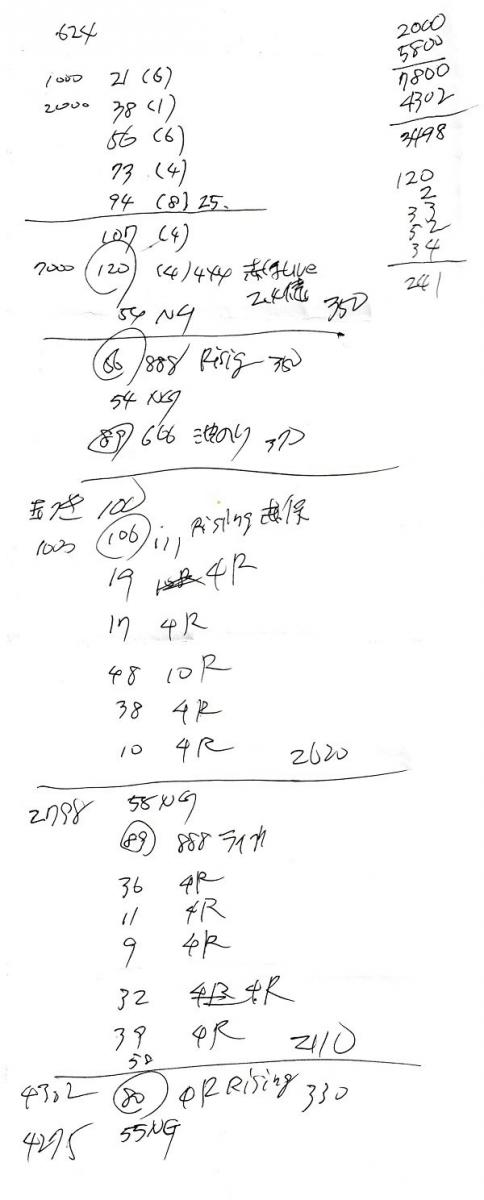 624
1000 21 (6)
2000 38 (1)
56 (6)
73 (4)
94 (8) 25.
107 (4)
7000 120 (4) 444 Live
350
54 NG
66 888 Rising 350
54 NG
89 666 370
100
1000 106 111 Rising
19 4R
17 4R
48 10R
38 4R
10 4R 2620
2798 58 NG
89 888
36 4R
11 4R
9 4R
32 4R
39 4R 2110
58
4302 80 4R Rising 330
4275 55 NG
2000
5800
7800
4302
3498
120
2
33
52
34
241